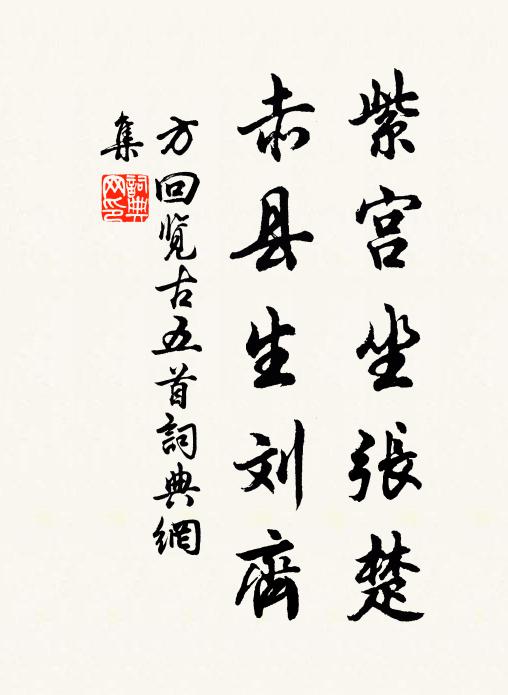 紫宫坐張楚
赤县生刘齊
方回览古五首詞典網
集
詞典网印